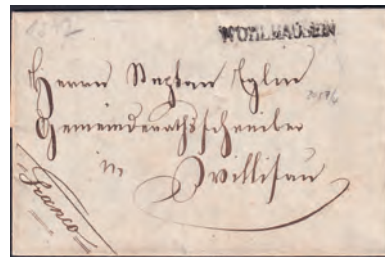 1842
WOHLHAUSEN
Herrn Stephan Eglin
Gemeinderathsschreiber
in
Willisau
Franco